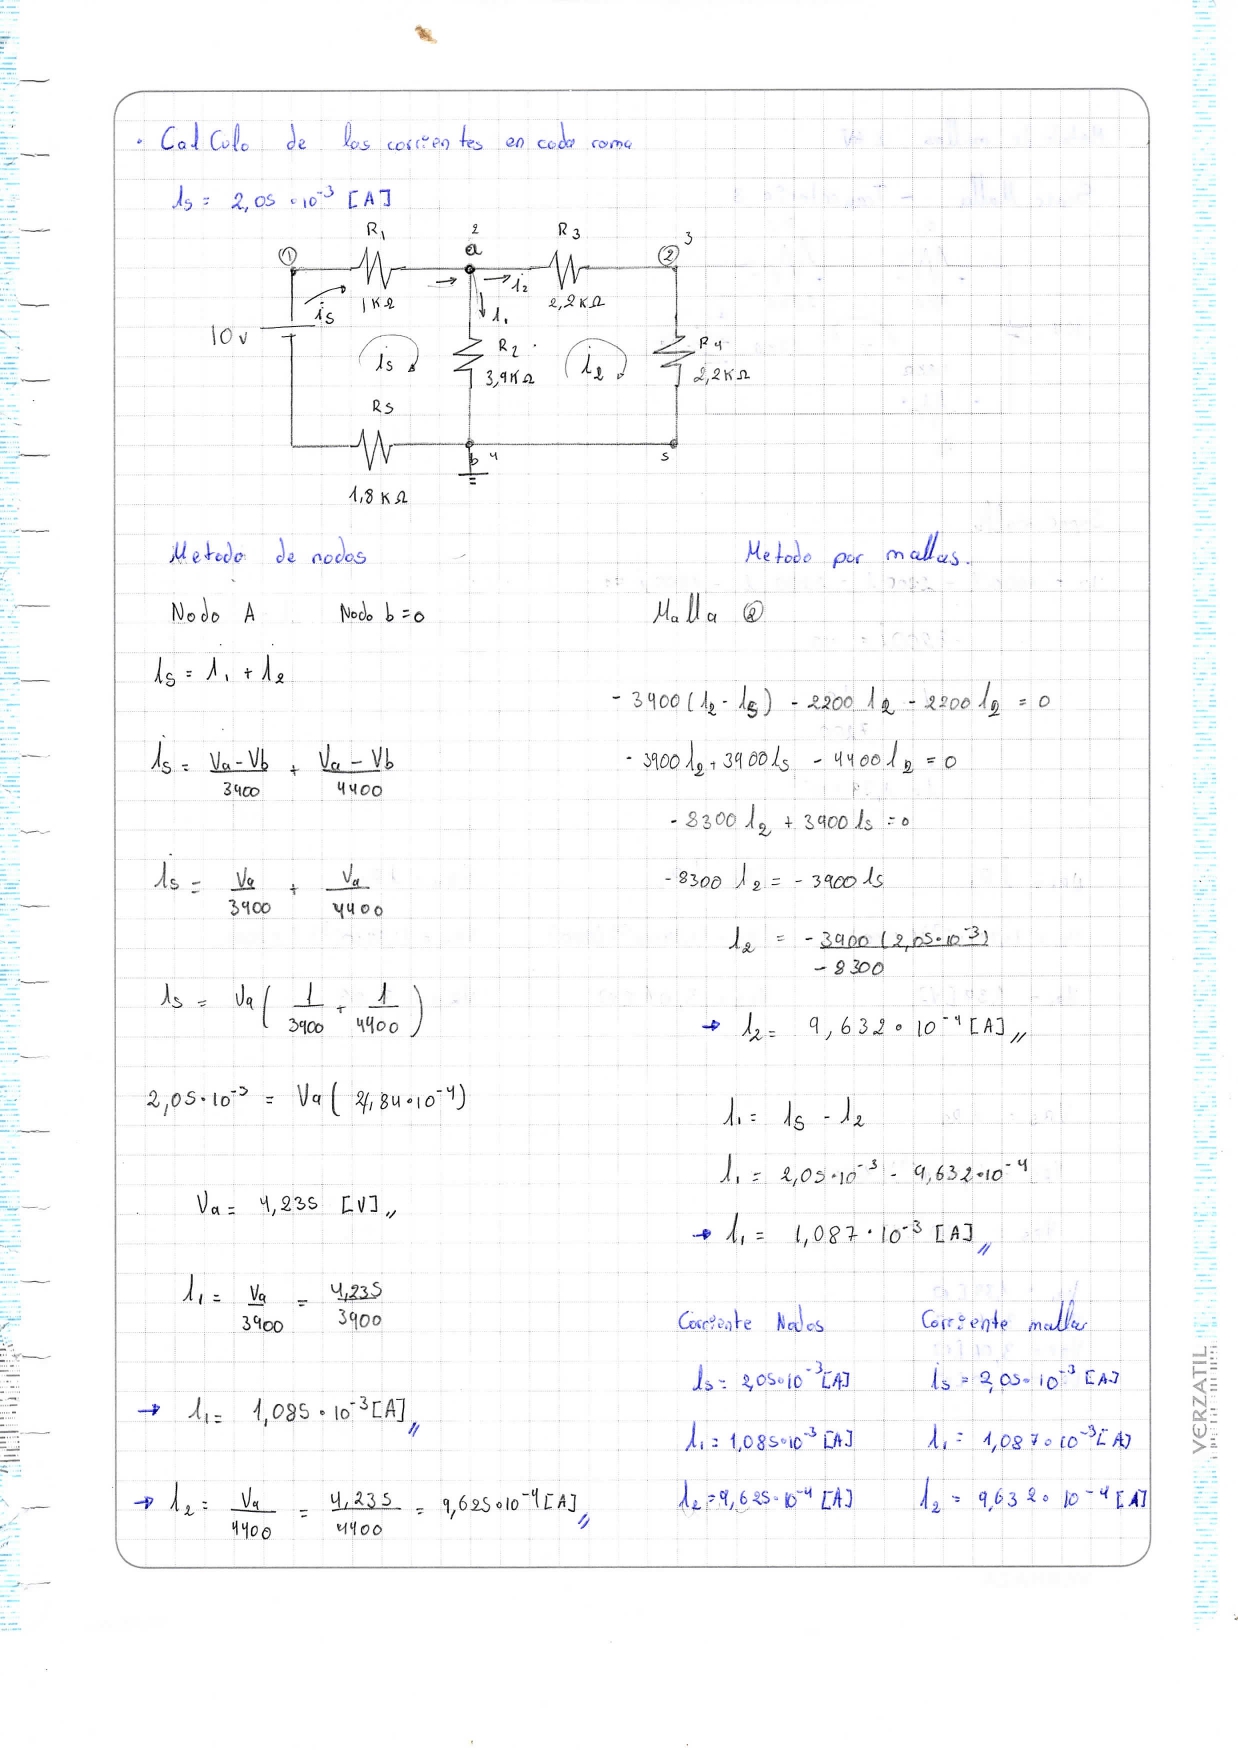 · Calculo de las corrientes en cada rama
is = 2,05 · 10⁻³ [A]
R₁ 2 R3
① a ② 3
is i₂
1KΩ 2,2KΩ
i₁
10v
R2 R4
is i₂
3,9KΩ 2,2KΩ
R5
b 4 5
1,8 KΩ
Metodo de nodos
Nodo A Nodo b = 0
is = i₁ + i₂
is = Va-Vb/3900 + Va-Vb/4400
is = Va/3900 + Va/4400
is = Va ( 1/3900 + 1/4400 )
2,05·10⁻³ = Va ( 4,84·10⁻⁴)
Va = 4,235 [V]
i₁ = Va/3900 = 4,235/3900
→ i₁ = 1,085 · 10⁻³ [A]
→ i₂ = Va/4400 = 4,235/4400 = 9,625·10⁻⁴ [A]
Metodo por mallas.
Malla ②
- 3900 (i₂ - is) - 2200 i₂ - 2200 i₂ = 0
- 3900 i₂ + 3900 is - 4400 i₂ = 0
- 8300 i₂ + 3900 is = 0
- 8300 i₂ = - 3900 is
i₂ = - 3900 (2,05·10⁻³)/- 8300
→ i₂ = 9,632 · 10⁻⁴ [A]
i₁ = is - i₂
i₁ = 2,05·10⁻³ - 9,632·10⁻⁴
→ i₁ = 1,087 · 10⁻³ [A]
Corriente Nodos Corriente mallas
is = 2,05·10⁻³ [A] is = 2,05·10⁻³ [A]
i₁ = 1,085·10⁻³ [A] i₁ = 1,087·10⁻³ [A]
i₂ = 9,625·10⁻⁴ [A] i₂ = 9,632·10⁻⁴ [A]
VERZATIL